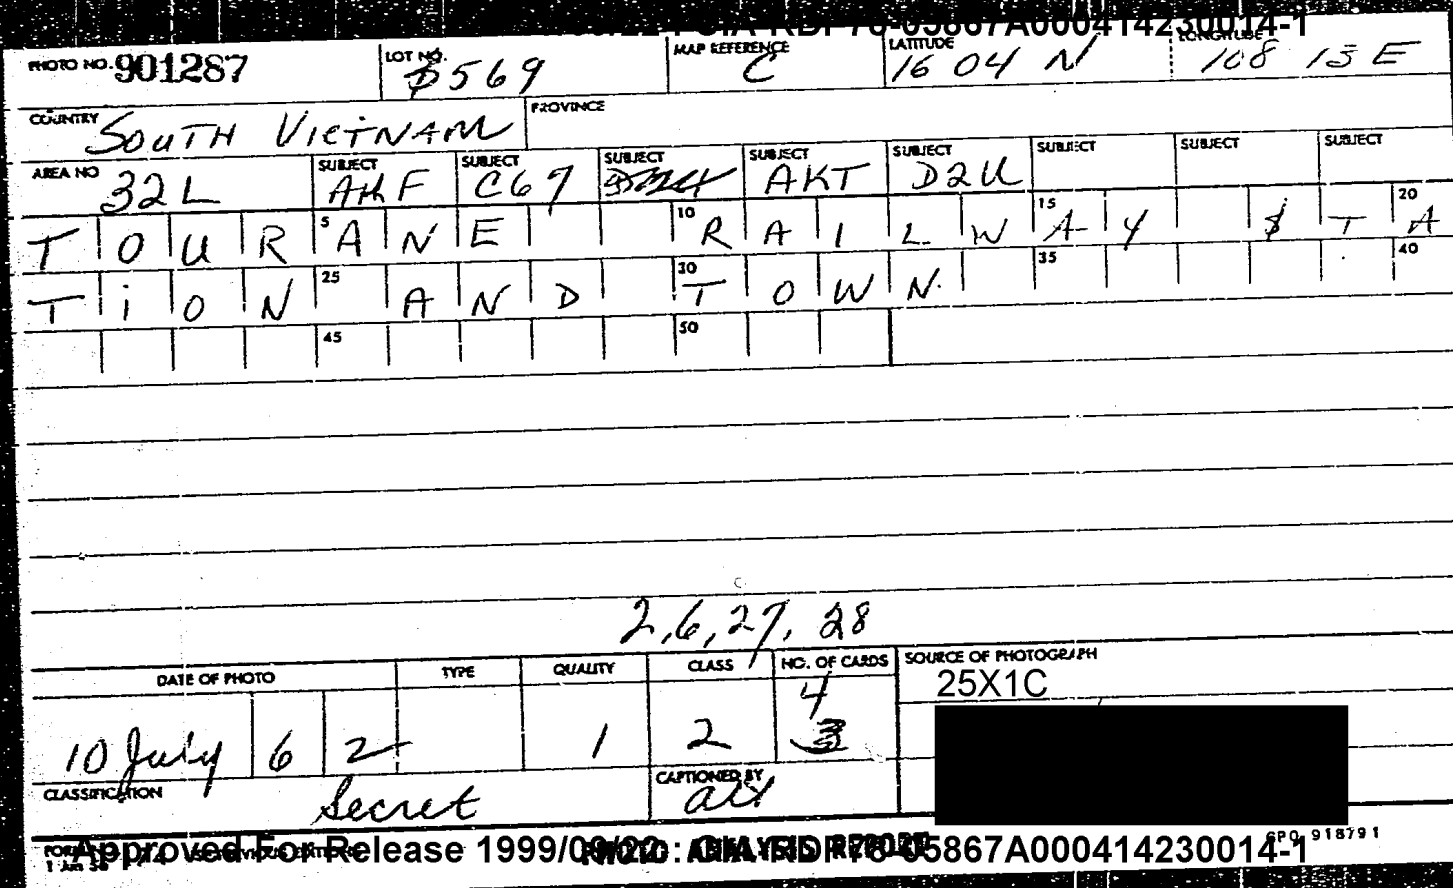 CIA-RDP78-05867A000414230014-1
PHOTO NO. 901287 LOT NO. 5569 MAP REFERENCE C LATITUDE 16 04 N LONGITUDE 108 13 E
COUNTRY SOUTH VIETNAM PROVINCE
AREA NO 32L SUBJECT AHF SUBJECT C67 SUBJECT SUBJECT AKT SUBJECT D2U SUBJECT SUBJECT SUBJECT
TOUR 5 ANE 10 RAILW 15 AY STA 20
TION 25 AND 30 TOWN. 35 40
45 50
2,6,27, 28
DATE OF PHOTO TYPE QUALITY CLASS NO. OF CARDS SOURCE OF PHOTOGRAPH
4 25X1C
10 July 6 2 1 2 3
CLASSIFICATION Secret CAPTIONED BY
Approved For Release 1999/09/22 : CIA-RDP78-05867A000414230014-1
PHOTO ANALYSIS REPORT
GPO 918791